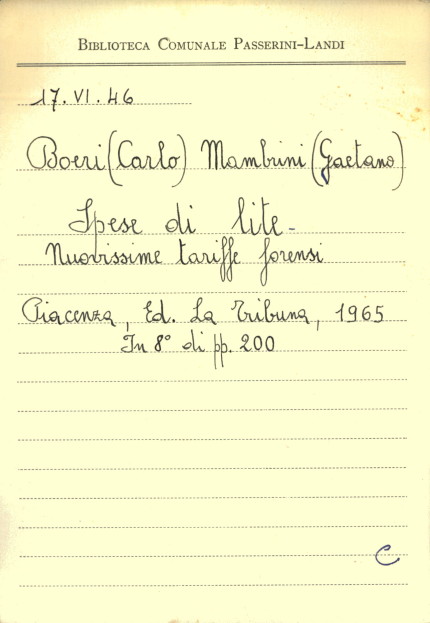 BIBLIOTECA COMUNALE PASSERINI-LANDI
17. VI. 46
Boeri (Carlo) Mambrini (Gaetano)
Spese di lite -
Nuovissime tariffe forensi
Piacenza, Ed. La Tribuna, 1965
In 8° di pp. 200
C